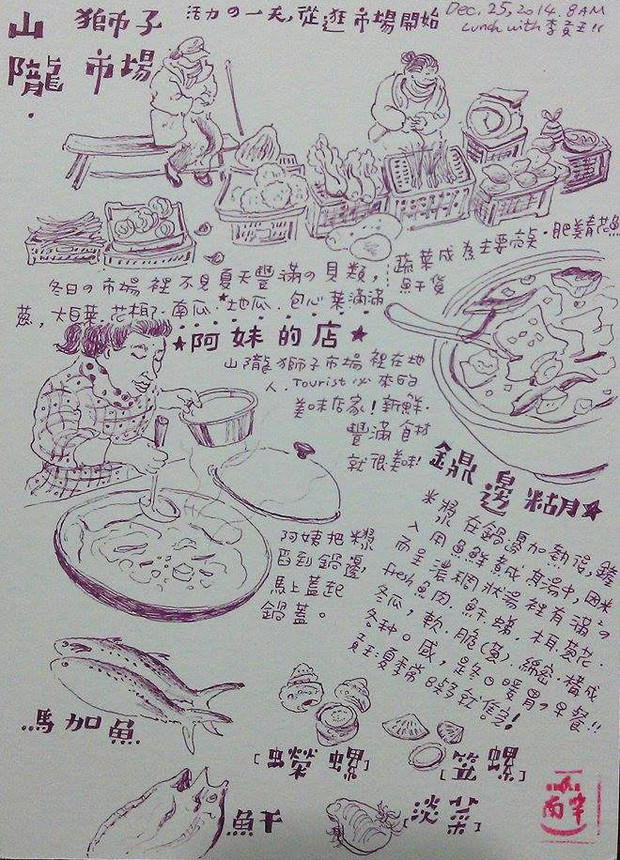 山隴獅子市場
活力の一天,從逛市場開始
Dec. 25, 2014. 8AM
Lunch with 李
冬日の市場裡不見夏天豐滿の貝類,
蔬菜成為主要亮點.肥美青花魚
魚干貨
蔥,大白菜.花椰.南瓜.地瓜.包心菜滿滿
★阿妹的店★
山隴獅子市場裡在地
人.Tourist必來的
美味店家!新鮮.
豐滿食材
就很美味!
鼎邊粘月★
米漿在鍋邊加熱後,鏟
入用魚鮮煮成高湯中,因米
而呈濃稠狀湯裡有滿の
fresh魚肉.魚干.蝦.木耳.葱花.
冬瓜,軟.脆(魚).綿密.構成
各種口感,是冬日暖胃の早餐!!
阿姨把米漿
舀到鍋邊,
馬上蓋起
鍋蓋。
馬加魚
[蠑螺]
[笠螺]
魚干
[淡菜]